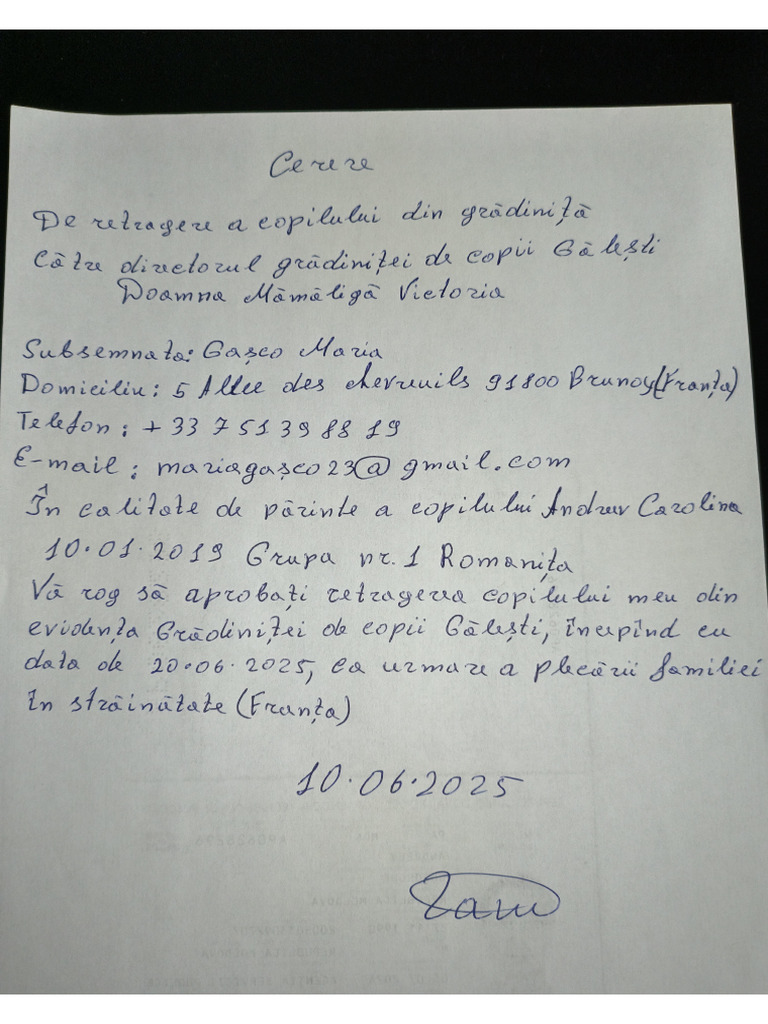 Cerere
De retragere a copilului din grădiniță
Către directorul grădiniței de copii Gălești
Doamna Mămăligă Victoria
Subsemnata: Gașco Maria
Domiciliu: 5 Allee des chevreuils 91800 Brunoy (Franța)
Telefon: +33 7 51 39 88 19
E-mail: mariagașco23@gmail.com
În calitate de părinte a copilului Andreev Carolina
10.01.2019 Grupa nr. 1 Romanița
Vă rog să aprobați retragerea copilului meu din
evidența Grădiniței de copii Gălești, începînd cu
data de 20.06.2025, ca urmare a plecării familiei
în străinătate (Franța)
10.06.2025